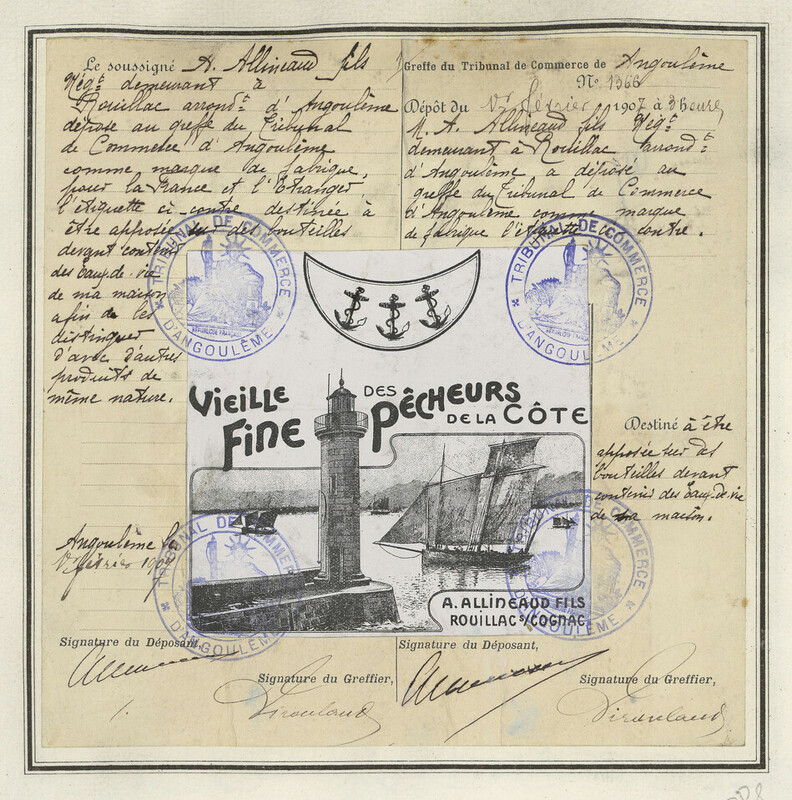 Le soussigné A. Allineaud fils
Nég.t demeurant à
Rouillac arrond.t d'Angoulême
dépose au greffe du Tribunal
de Commerce d'Angoulême
comme marque de fabrique,
pour la France et l'Etranger
l'étiquette ci-contre destinée à
être apposée sur des bouteilles
devant contenir
des Eaux-de-vie
de ma maison
afin de les
distinguer
d'avec d'autres
produits de
même nature.
Angoulême le
février 1907
Signature du Déposant,
Signature du Greffier,
Greffe du Tribunal de Commerce de Angoulême
No 1366
Dépôt du février 1907 à 3 heures
M. A. Allineaud fils Nég.t
demeurant à Rouillac arrond.t
d'Angoulême a déposé au
greffe du Tribunal de Commerce
d'Angoulême comme marque
de fabrique l'étiquette ci-contre.
Destiné à être
apposée sur des
bouteilles devant
contenir des Eaux-de-vie
de sa maison.
Signature du Déposant,
Signature du Greffier,
VIEILLE FINE
DES PÊCHEURS
DE LA CÔTE
A. ALLINEAUD FILS
ROUILLAC S/COGNAC
TRIBUNAL DE COMMERCE D'ANGOULÊME
RÉPUBLIQUE FRANÇAISE
TRIBUNAL DE COMMERCE D'ANGOULÊME
TRIBUNAL DE COMMERCE D'ANGOULÊME
TRIBUNAL DE COMMERCE D'ANGOULÊME